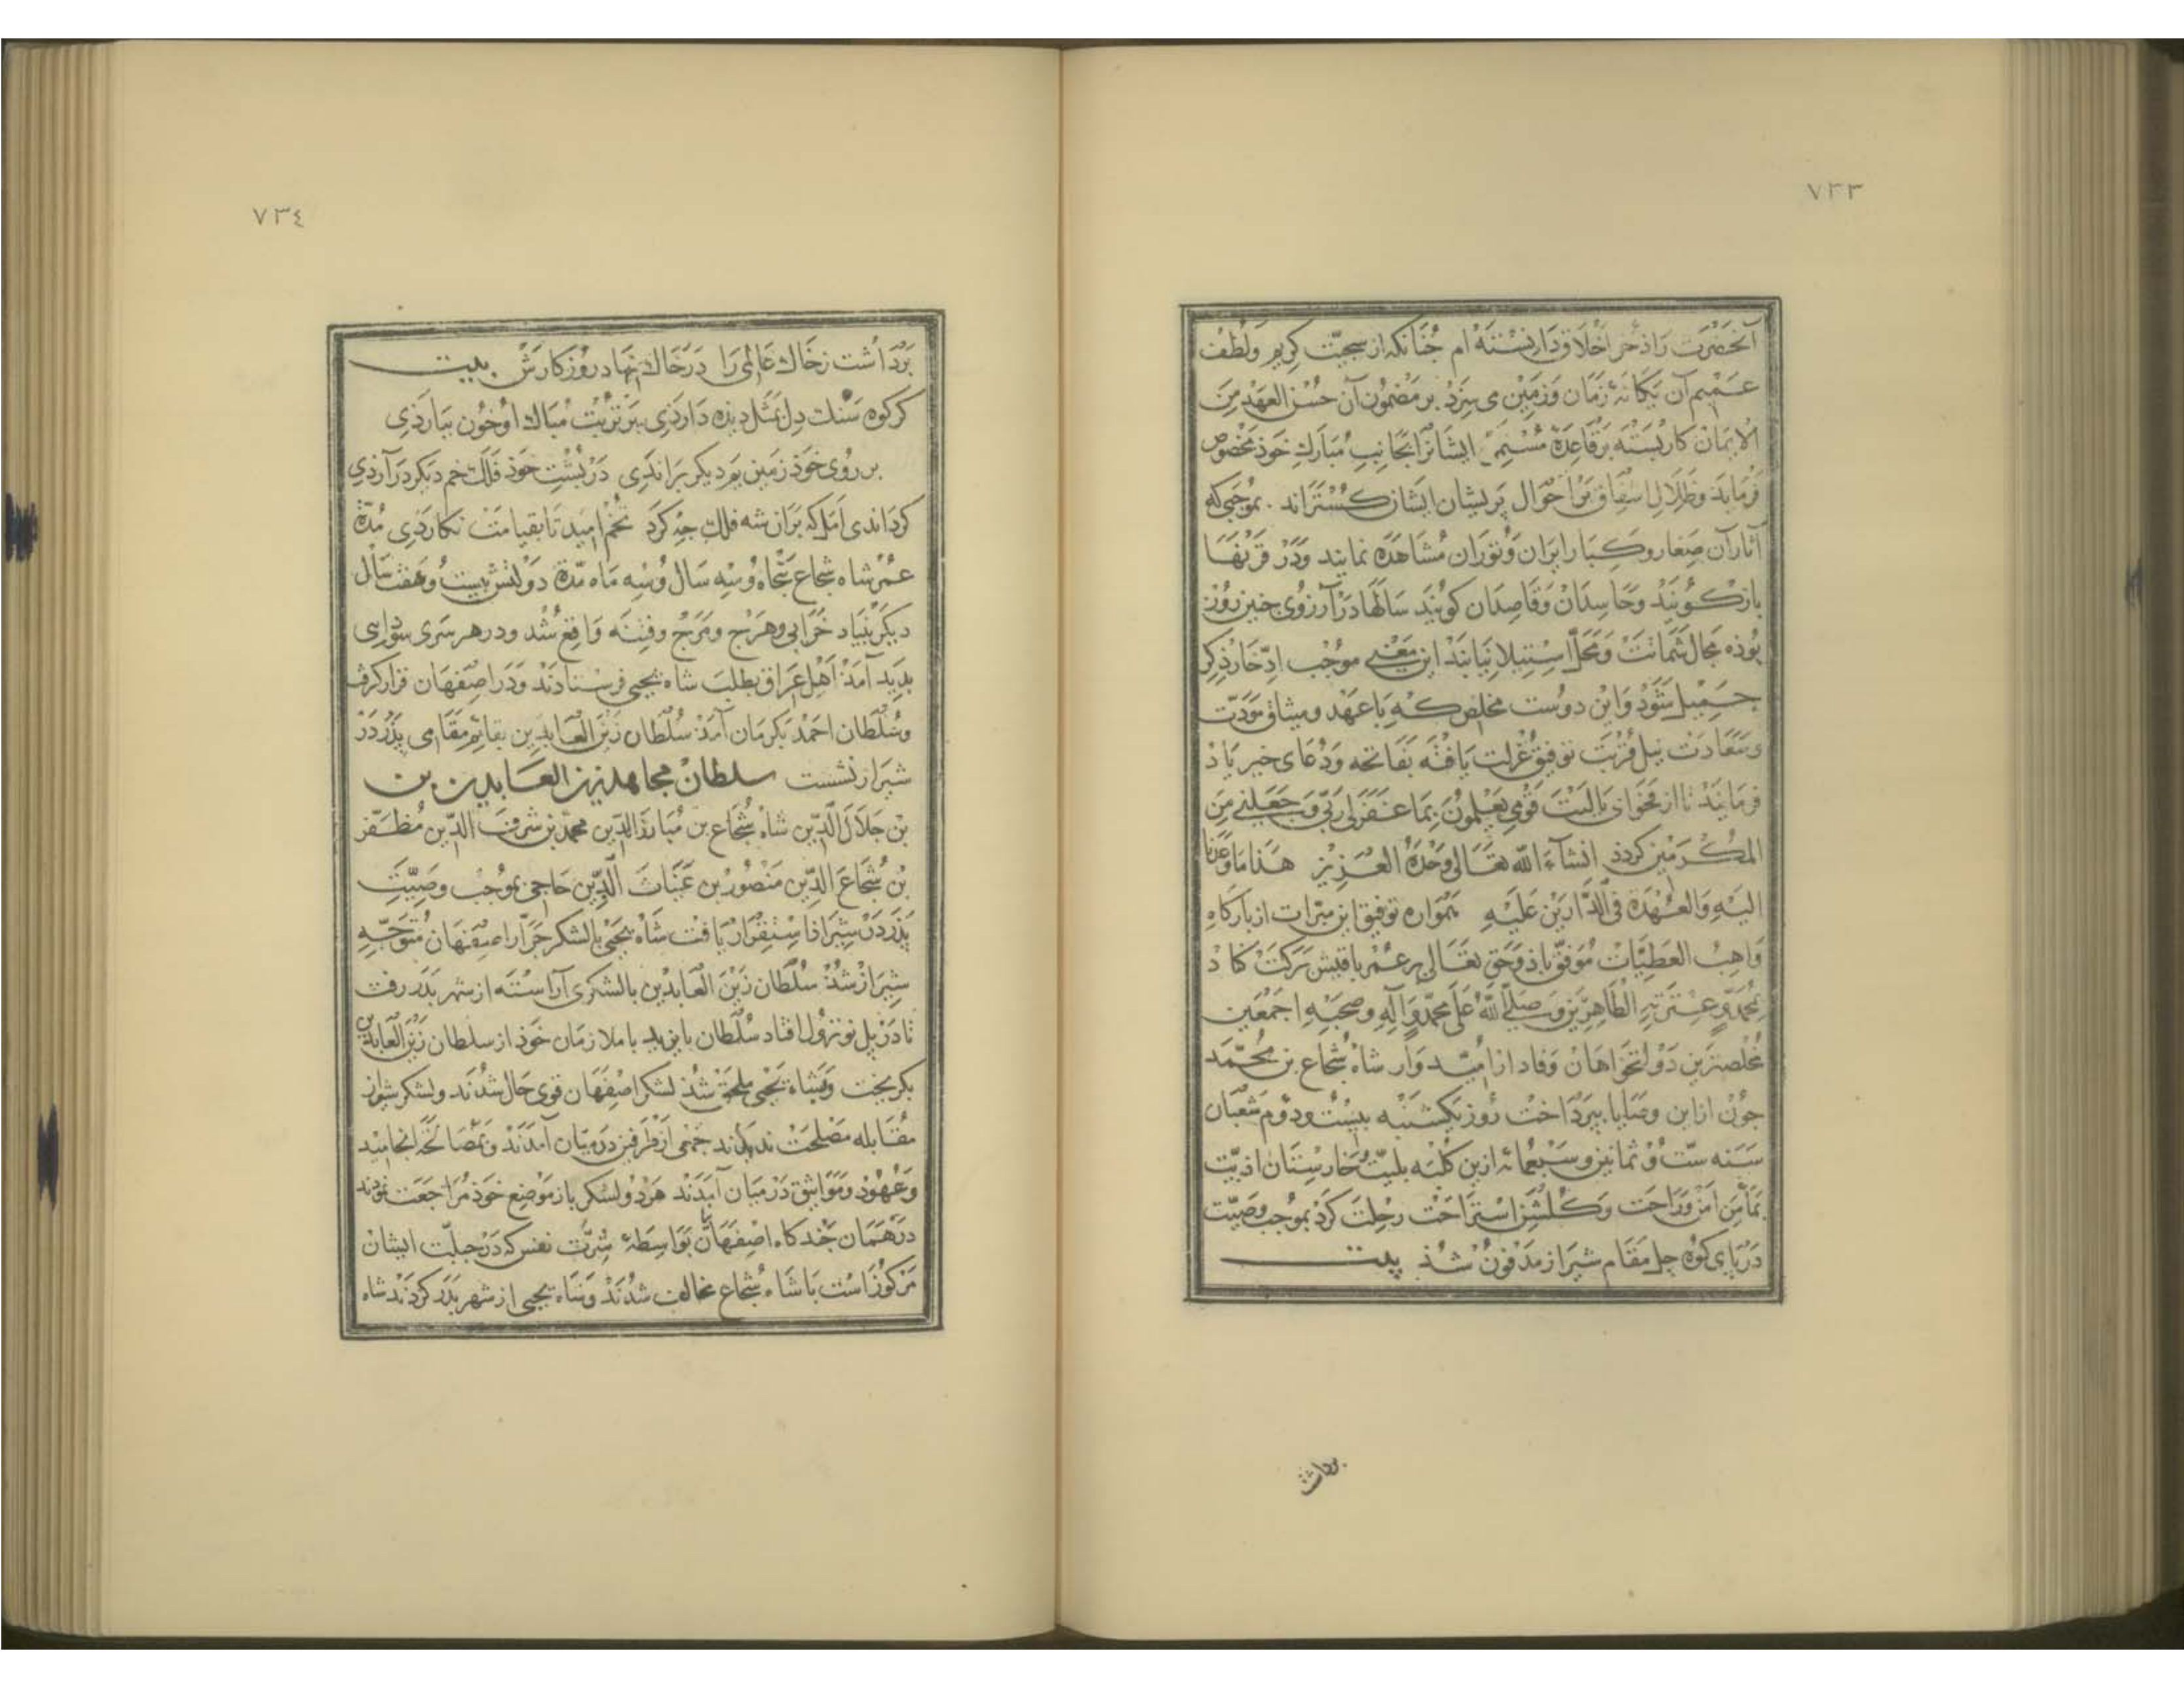 ٧٣٣
آنحضرت را ذخر اخلاق دانسته ام چنانکه از سجیّت کریم ولطف
عمیم آن یکانهٔ زمان وزمین می سزد بر مضمون آن حسن العهد من
الایمان کار بسته برقاعدهٔ ایشانرا بجانب مبارك خوذ مخصوص
فرماید وظلال اشفاق بر احوال پریشان ایشان کستراند . بموجبی که
آثار آن صغار وکبار ایران وتوران مشاهده نمایند ودر قرنها
بازکویند وحاسدان وقاصدان کویند سالها در آرزوی چنین روز
بوذه مجال شماتت ومحلّ استیلا نیابند این معنی موجب ادّخار ذکر
جمیل شود واین دوست مخلص که با عهد ومیثاق مودّت
وسعادت نیل قربت توفیق عزلت یافته بفاتحه ودعای خیر یاد
فرمایند تا از فحوای یالیت قومی یعلمون بما غفرلی ربّی وجعلنی من
المکرمین کردذ انشآء الله تعالی وحده العزیز هذا ما وعدنا
الیه والعهدة فی الدّارین علیه همواره توفیق این مبرّات از بارکاه
واهب العطیّات موفّق باذ وحق تعالی بر عمر باقیش برکت کناد
بمحمّد وعترته الطاهرین وصلّی الله علی محمّد وآله وصحبه اجمعین
مخلصترین دولتخواهان وفادار امیدوار شاه شجاع بن محمّد
چون از این وصایا بپرداخت روز یکشنبه بیست ودوم شعبان
سنه ستّ وثمانین وسبعمائه ازین کلبه بلیّت وخارستان اذیّت
بمأمن امن وراحت وکلشن استراحت رحلت کرد بموجب وصیّت
در پای کوه چل مقام شیراز مدفون شذ بیت
برداشت
٧٣٤
برداشت زخاك عالمی را در خاك نهاد روزکارش بیت
کر کوه سنك دل بمثل دیده داردی بر تربت مبارك او خون بباردی
بر روی خوذ زمین نم دیکر براندی در پشت خوذ فلك خم دیکر درآرذی
کرداندی امل که بر آن شه فلك چه کرد تخم امید تا بقیامت نکارذی مدّة
عمر شاه شجاع پنجاه وسه سال وسه ماه مدّة دولتش بیست وهفت سال
دیکر بنیاد خرابی وهرج ومرج وفتنه واقع شد ودر هر سری سوداسی
بدید آمذ اهل عراق بطلب شاه یحیی فرستادند ودر اصفهان قرار کرفت
وسلطان احمد بکرمان آمد سلطان زین العابدین بقایم مقامی پذر در
شیراز نشست سلطان مجاهد زین العابدین بن
بن جلال الدّین شاه شجاع بن مبارز الدّین محمّد بن شرف الدّین مظفّر
بن شجاع الدّین منصور بن غیاث الدّین حاجی بموجب وصیّت
پذر در شیراز استقرار یافت شاه یحیی بالشکر جرّار اصفهان متوجّه
شیراز شذ سلطان زین العابدین بالشکری آراسته از شهر بدر رفت
تا در پل نو نزول افتاد سلطان بایزید با ملازمان خوذ از سلطان زین العابدین
بکریخت وبشاه یحیی ملحق شذ لشکر اصفهان قوی حال شدند ولشکر شیراز
مقابله مصلحت ندیدند جمعی از طرفین درمیان آمدند وبمصالحه انجامید
وعهود ومواثیق درمیان آمدند هر دو لشکر باز موضع خوذ مراجعت نمودند
در همان چندکاه اصفهان بواسطهٔ شرّت نفس که در جبلّت ایشان
مرکوز است با شاه شجاع مخالف شدند وشاه یحیی از شهر بدر کردند شاه